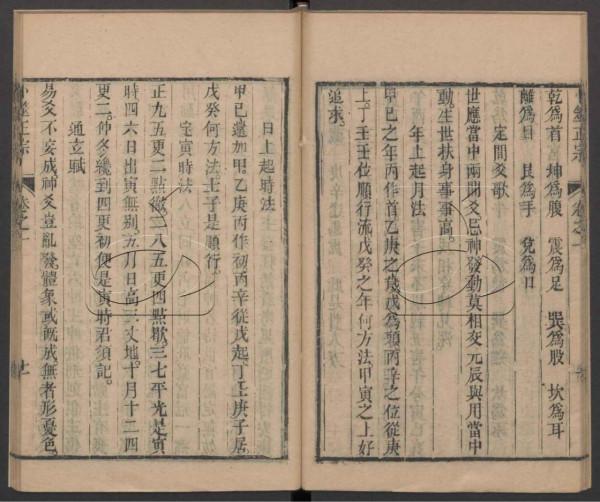 乾爲首 坤爲腹 震爲足 巽爲股 坎爲耳
離爲目 艮爲手 兌爲口
定間爻歌
世應當中兩間爻忌神發動莫相交元辰與用當中
動生世扶身事事高
年上起月法
甲巳之年丙作首乙庚之歲戊爲頭丙辛之位從庚
上丁壬壬位順行流戊癸之年何方法甲寅之上好
追求
日上起時法
甲巳還加甲乙庚丙作初丙辛從戊起丁壬庚子居
戊癸何方法壬子是順行
定寅時法
正九五更二點徹二八五更四點歇三七平光是寅
時四六日出寅無别五月日高三丈地十月十二四
更二仲冬纔到四更初便是寅時君須記
通玄賦
易爻不妄成神爻豈亂發體象或既成無者形憂色
卷之一